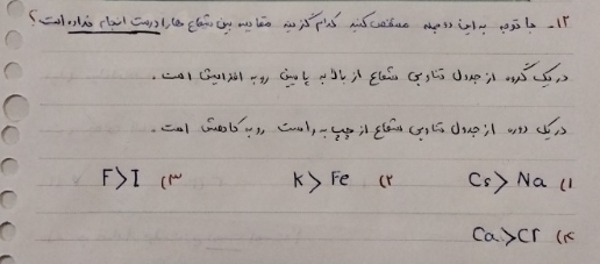 ۱۲- با توجه به این دو جمله مشخص کنید کدام گزینه مقایسه بین شعاع ها را درست انجام نداده است؟
در یک گروه از جدول تناوبی شعاع از بالا به پایین رو به افزایش است.
در یک دوره از جدول تناوبی شعاع از چپ به راست رو به کاهش است.
۱) Cs > Na ۲) K > Fe ۳) F > I
۴) Ca > Cr